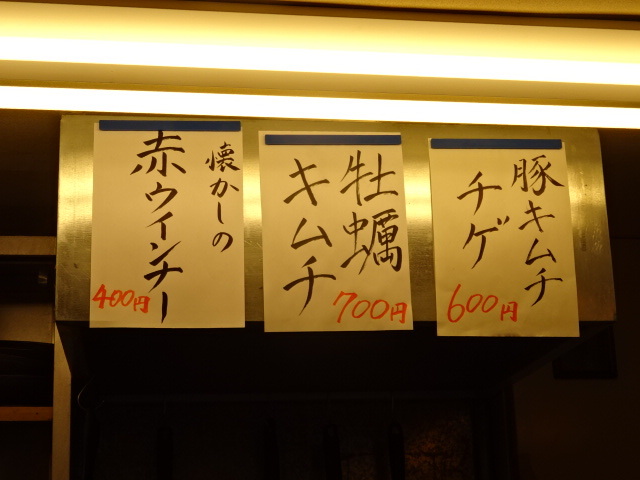 豚キムチ
チゲ
600円
牡蠣
キムチ
700円
懐かしの
赤ウインナー
400円